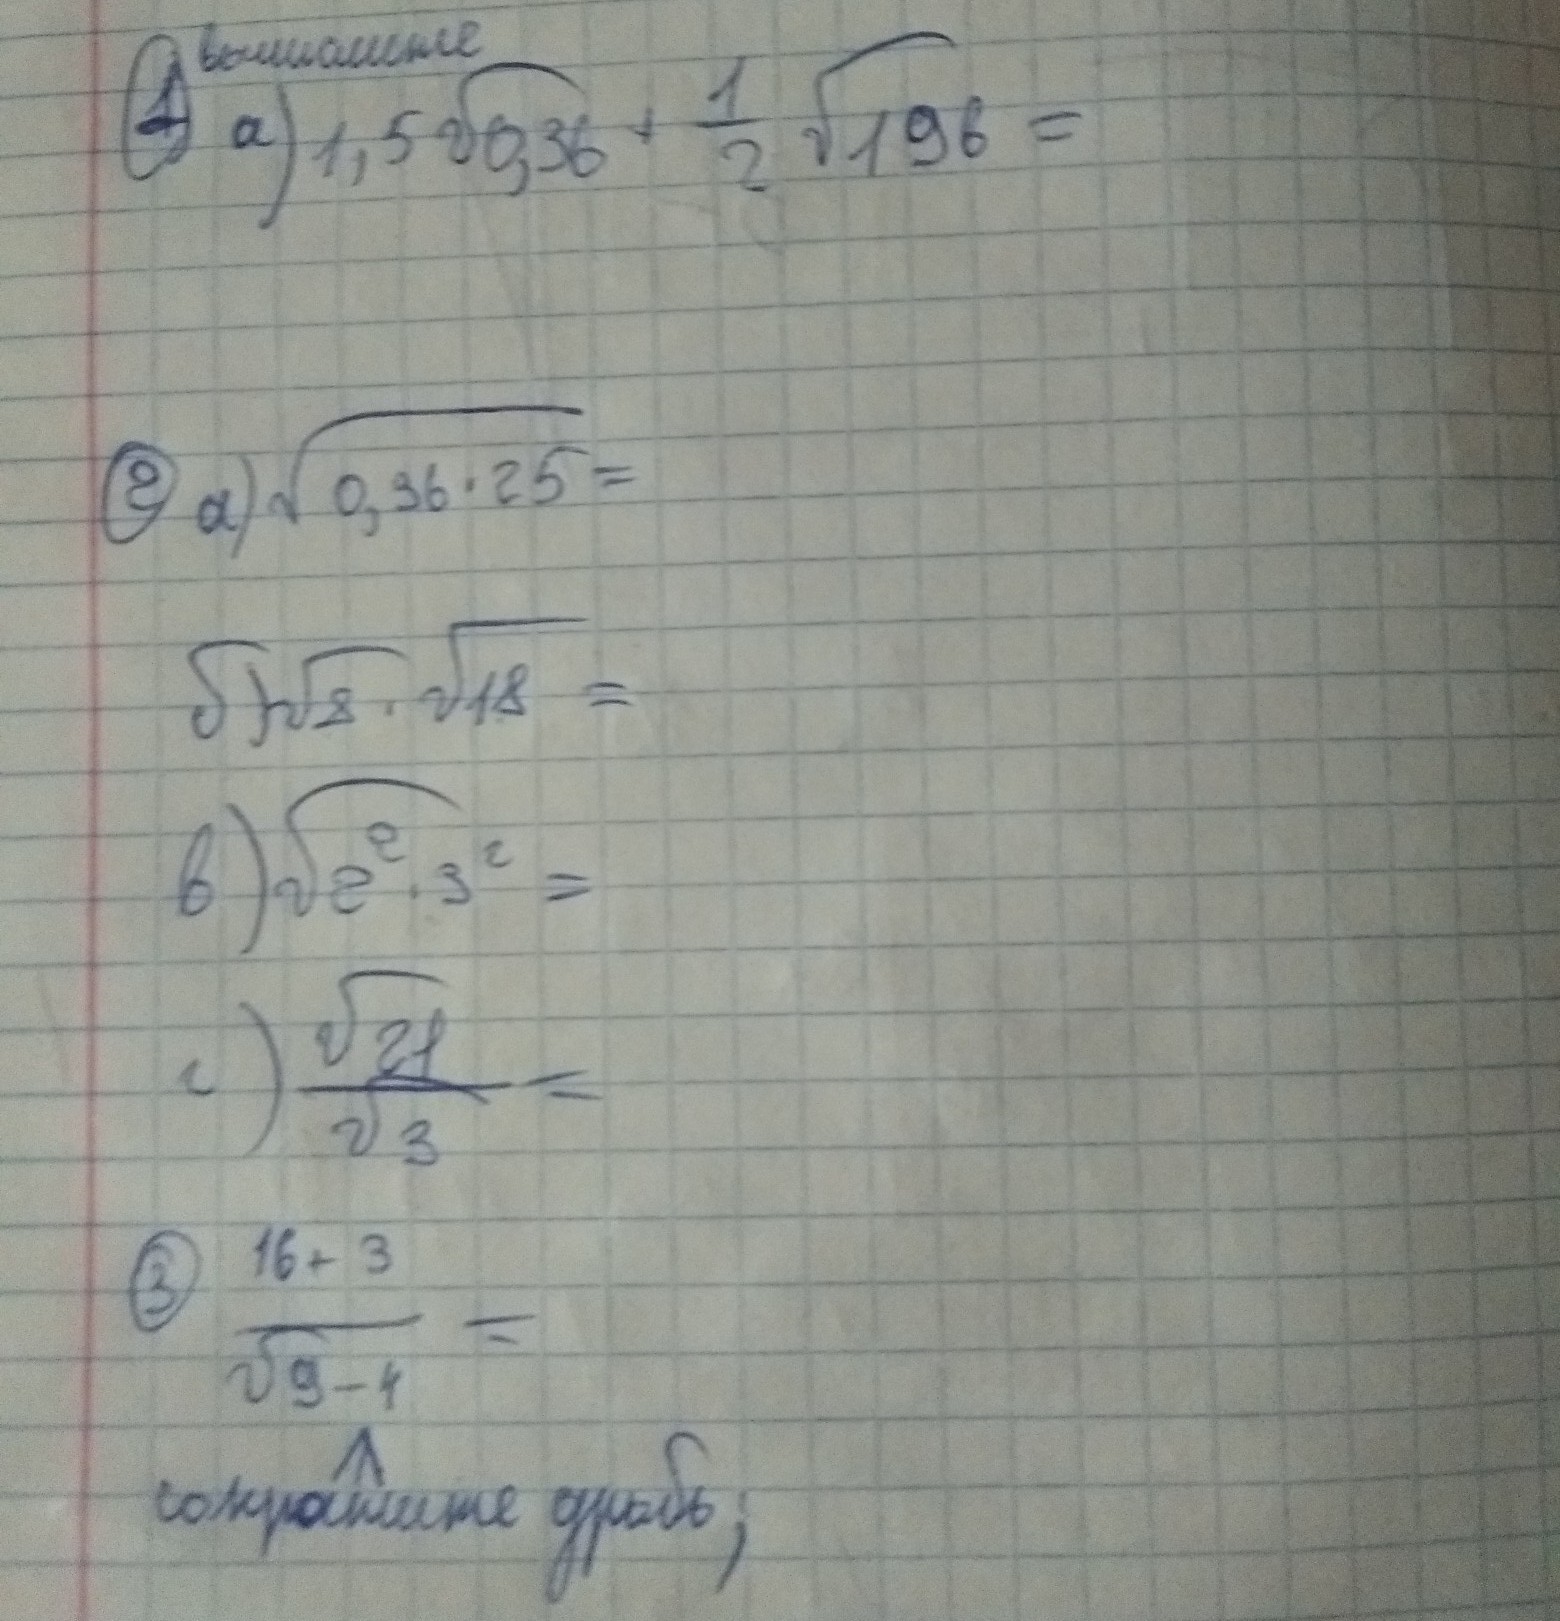 1 вычислите
а) 1,5√0,36 + 1/2 √196 =
2 а) √0,36·25 =
б) √8 · √18 =
в) √2²·3² =
г) √21/√3 =
3 16+3/√9-4 =
сократите дробь;